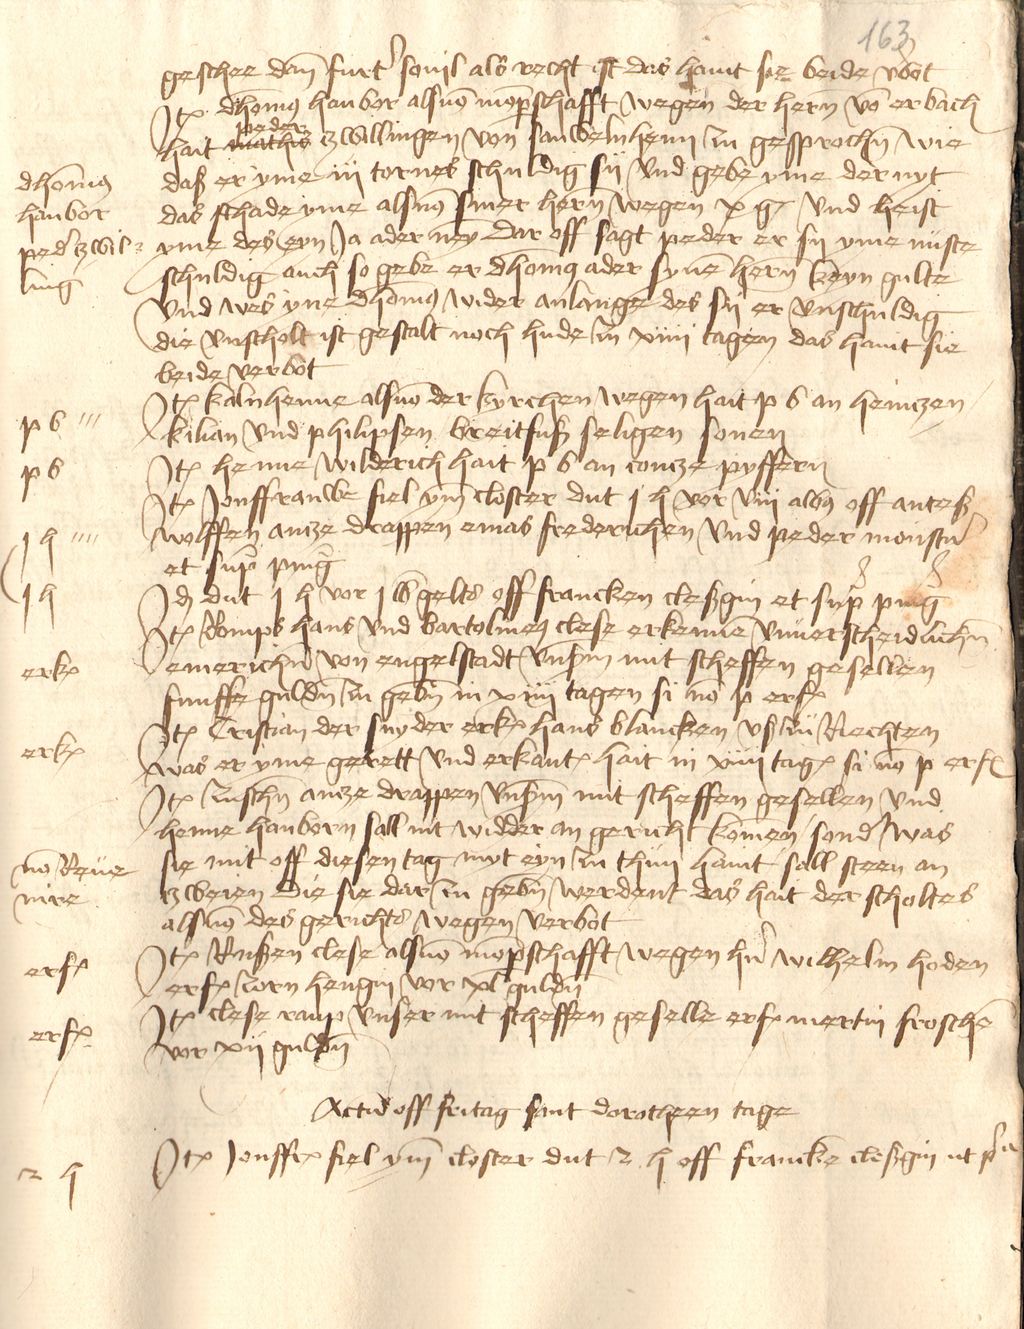 163
geschee dan furt sovil als recht ist das hant sie beide vbot
Itꝫ dhomꝰ hanbor als von mopschafft wegen der hern von erbach
peder
hait mathis zwillingen von sauwelnhenn zu gesprochen wie
das er yme iii tornes schuldig sij und gebe yme der nyt
das schade yme als von siner hern wegen x g und heist
yme des eyn Ja ader ney dar off sagt peder er sij yme nuste
schuldig auch so gebe er dhomꝰ ader syne hern keyn gulte
und wes yne dhomꝰ wider anlange des sij er unschuldig
die unscholt ist gestalt noch hude zu xiiii tagen das hant sie
beide verbot
dhomꝰ
hanbor
ped zwil
ling
Itꝫ kaln henne als von der kyrchen wegen hait p b an heinczen
kilian und philipsen breitfuß seligen sonen
p b ///
Itꝫ henne wilderich hait p b an concze pyffern
p b
Itꝫ Jonffrauwe fiel ym closter dut 1 h vor viii alb off anteß
wolffen ancze drappen emas frederichen und peder
et sup pingͫ
1 h ////
Id dut 1 h vor 1 lb gelts off francken cleßgin et sup ping
1 h
Itꝫ Romps hans und bartolmeꝰ clese erkennen unverscheidlichen
emerichen von engelstadt unserm mit scheffen gesellen
funffe gulden zu geben in xiiii tagen si non p erfꝫ
erkꝫ
Itꝫ Cristian der snyder erkꝫ hans blancken uß zu Rechten
was er yme gerett und erkant hait in xiiii tagꝫ si non p erfꝫ
erkꝫ
Itꝫ zuschen ancze drappen unserm mit scheffen gesellen und
henne hanborn sall nit widder an gericht komen sonder was
sie mit off diesen tag myt eyn zu thun hant sall steen an
zweien die sie dar zu geben werdent das hait der scholtes
als von des gerichts wegen verbot
non Reve
nire
Itꝫ Rußen clese als von mopschafft wegen hern wilhelm hoden
erfꝫ zorn hengin vor xl gulden
erfꝫ
Itꝫ clese raup unser mit scheffen geselle erfꝫ mertin froschen
vor xii gulden
erfꝫ
Actum off fritag sant dorotheen tage
Itꝫ Jonffꝫ fiel ym closter dut 2 h off francke cleßgin ut p
2 h